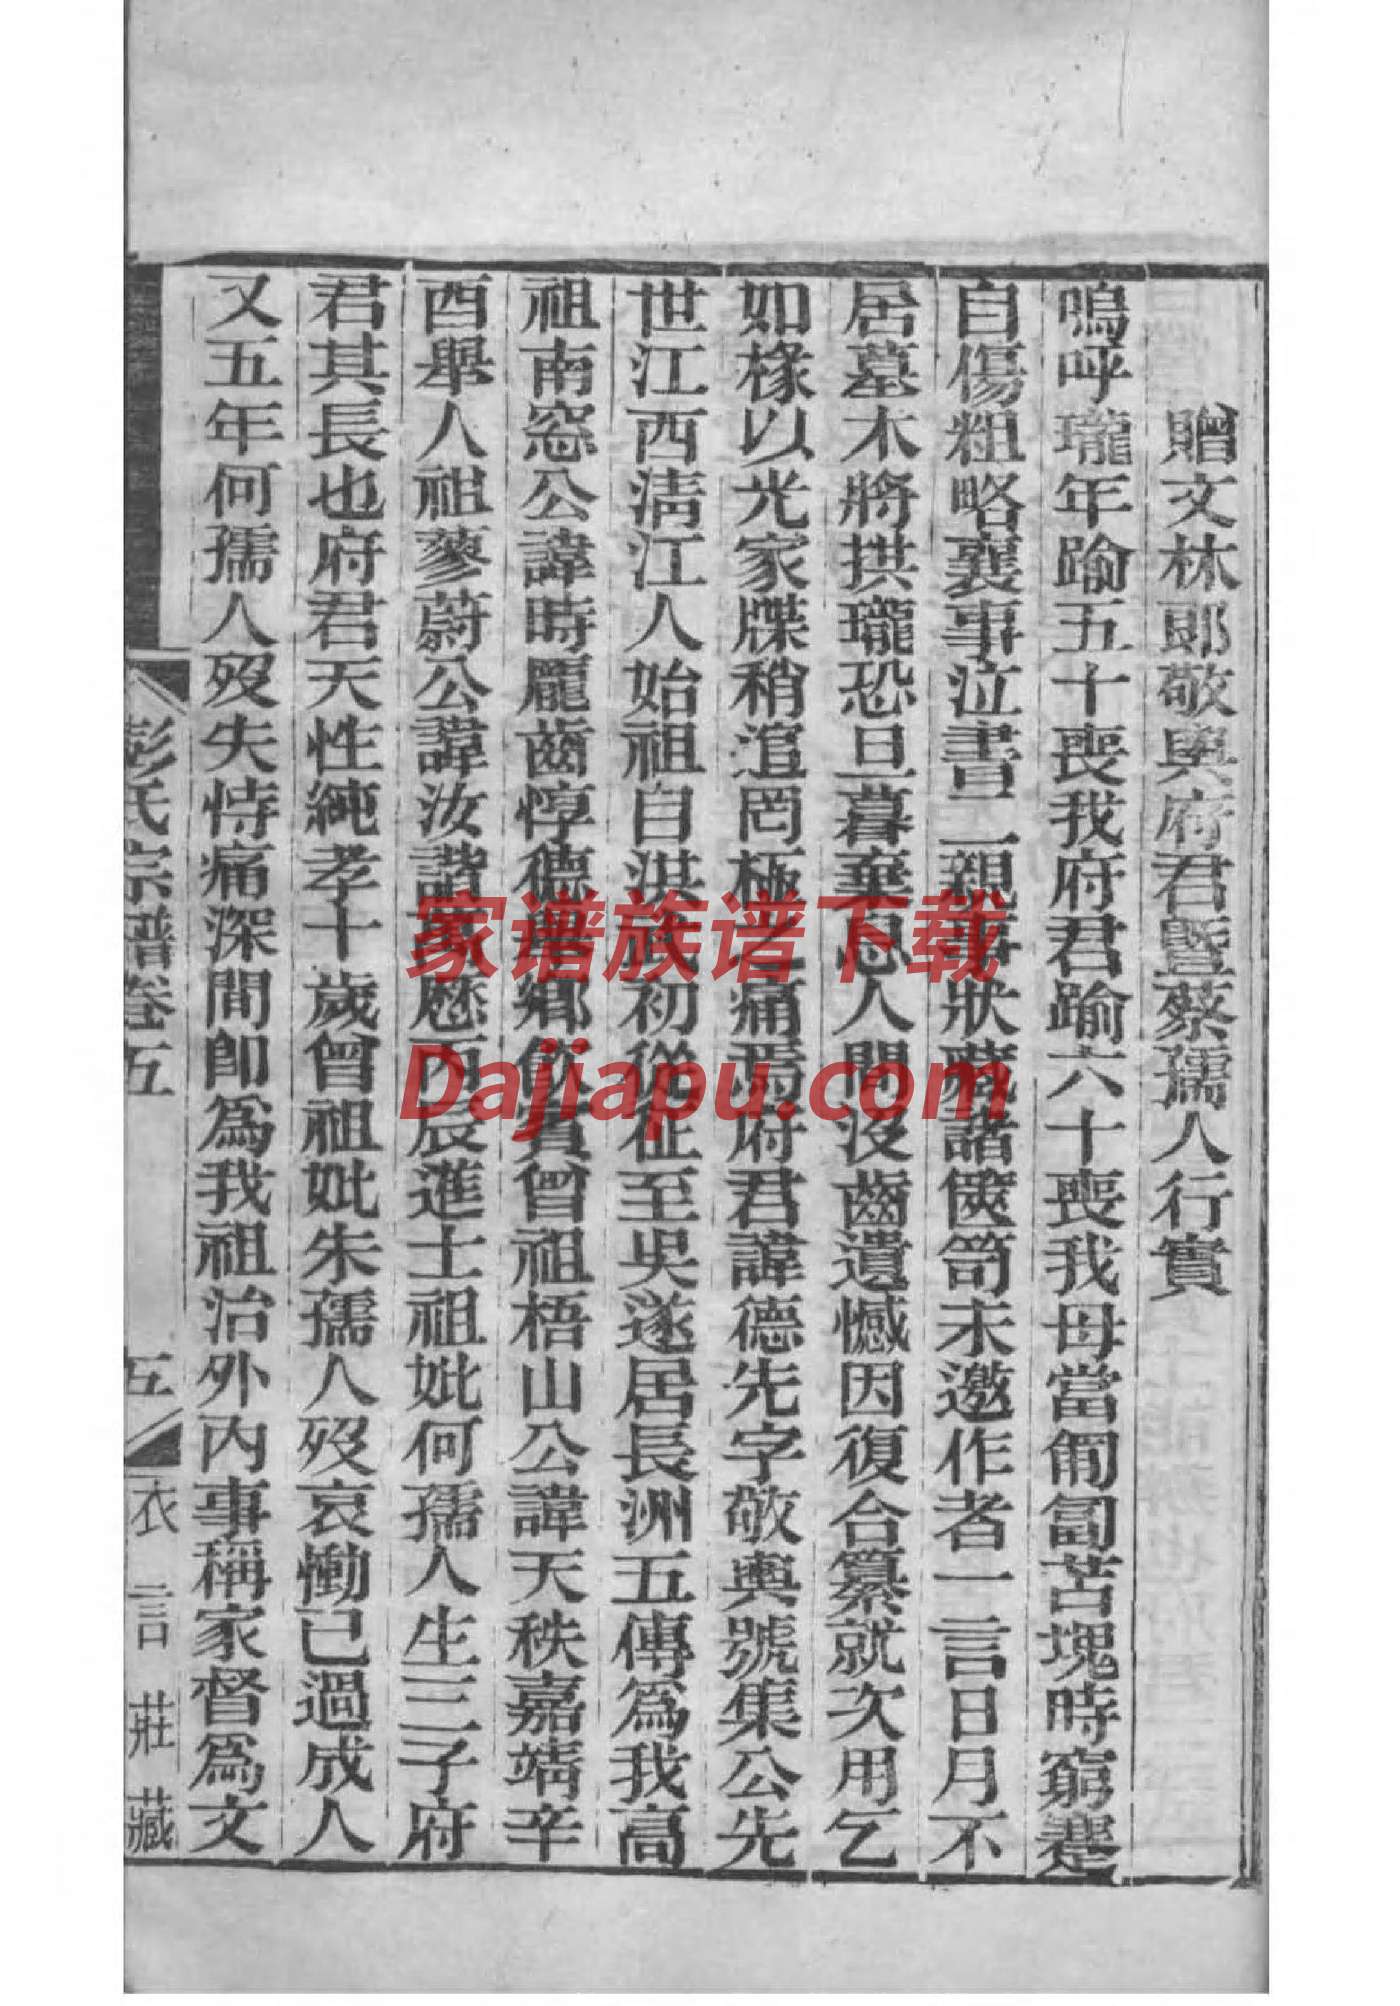 贈文林郎敬輿府君暨蔡孺人行實
嗚呼瓏年踰五十喪我府君踰六十喪我母當匍匐苫塊時窮蹇
自傷粗略襄事泣書二親事狀藏諸篋笥未邀作者一言日月不
居墓木將拱瓏恐旦暮棄人間沒齒遺憾因復合纂就次用乞
如椽以光家牒稍逭罔極之痛焉府君諱德先字敬輿號集公先
世江西淸江人始祖自洪武初從征至吳遂居長洲五傳爲我高
祖南窓公諱時龎齒惇德鄉飲賓曾祖梧山公諱天秩嘉靖辛
酉舉人祖蓼蔚公諱汝諧萬厯丙辰進士祖妣何孺人生三子府
君其長也府君天性純孝十歲曾祖妣朱孺人歿哀慟已過成人
又五年何孺人歿失恃痛深間卽爲我祖治外內事稱家督爲文
彭氏宗譜卷五
五
衣言莊藏
家谱族谱下载
Dajiapu.com